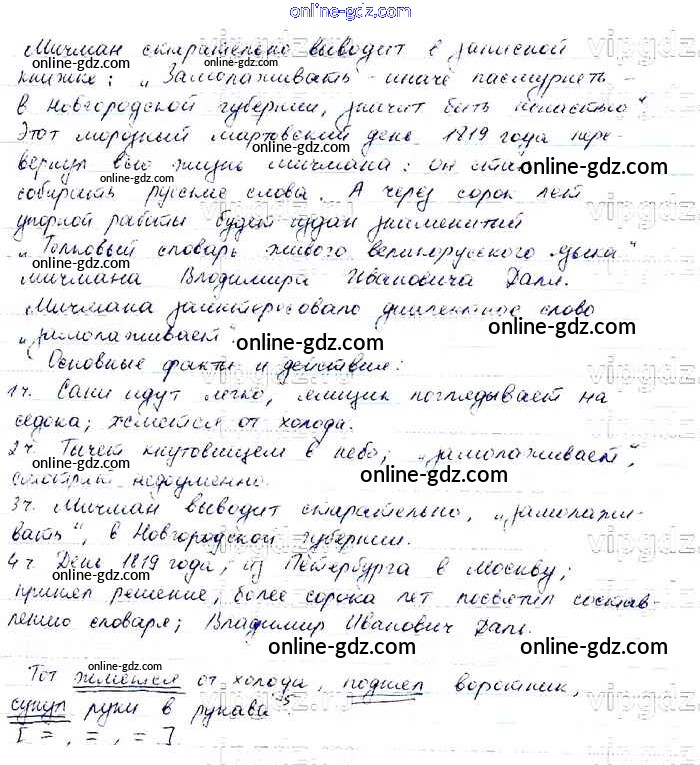 Мичман старательно выводит в записной
книжке: „Замолаживать - иначе пасмурнеть -
в Новгородской губернии, значит быть ненастью“
Этот морозный мартовский день 1819 года пере-
вернул всю жизнь мичмана: он стал
собирать русские слова. А через сорок лет
упорной работы будет издан знаменитый
„Толковый словарь живого великорусского языка“
мичмана Владимира Ивановича Даля.
Мичмана заинтересовало диалектное слово
„замолаживает“.
Основные факты и действия:
1ч. Сани идут легко, ямщик поглядывает на
седока; жмется от холода.
2ч. Тычет кнутовищем в небо; „замолаживает“,
смотрит недоуменно.
3ч. Мичман выводит старательно, „замолажи-
вать“, в Новгородской губернии.
4ч. День 1819 года; из Петербурга в Москву;
принял решение, более сорока лет посвятил состав-
лению словаря; Владимир Иванович Даль.
Тот жмется от холода, поднял воротник,
сунул руки в рукава
[ = , = , = ].
online-gdz.com